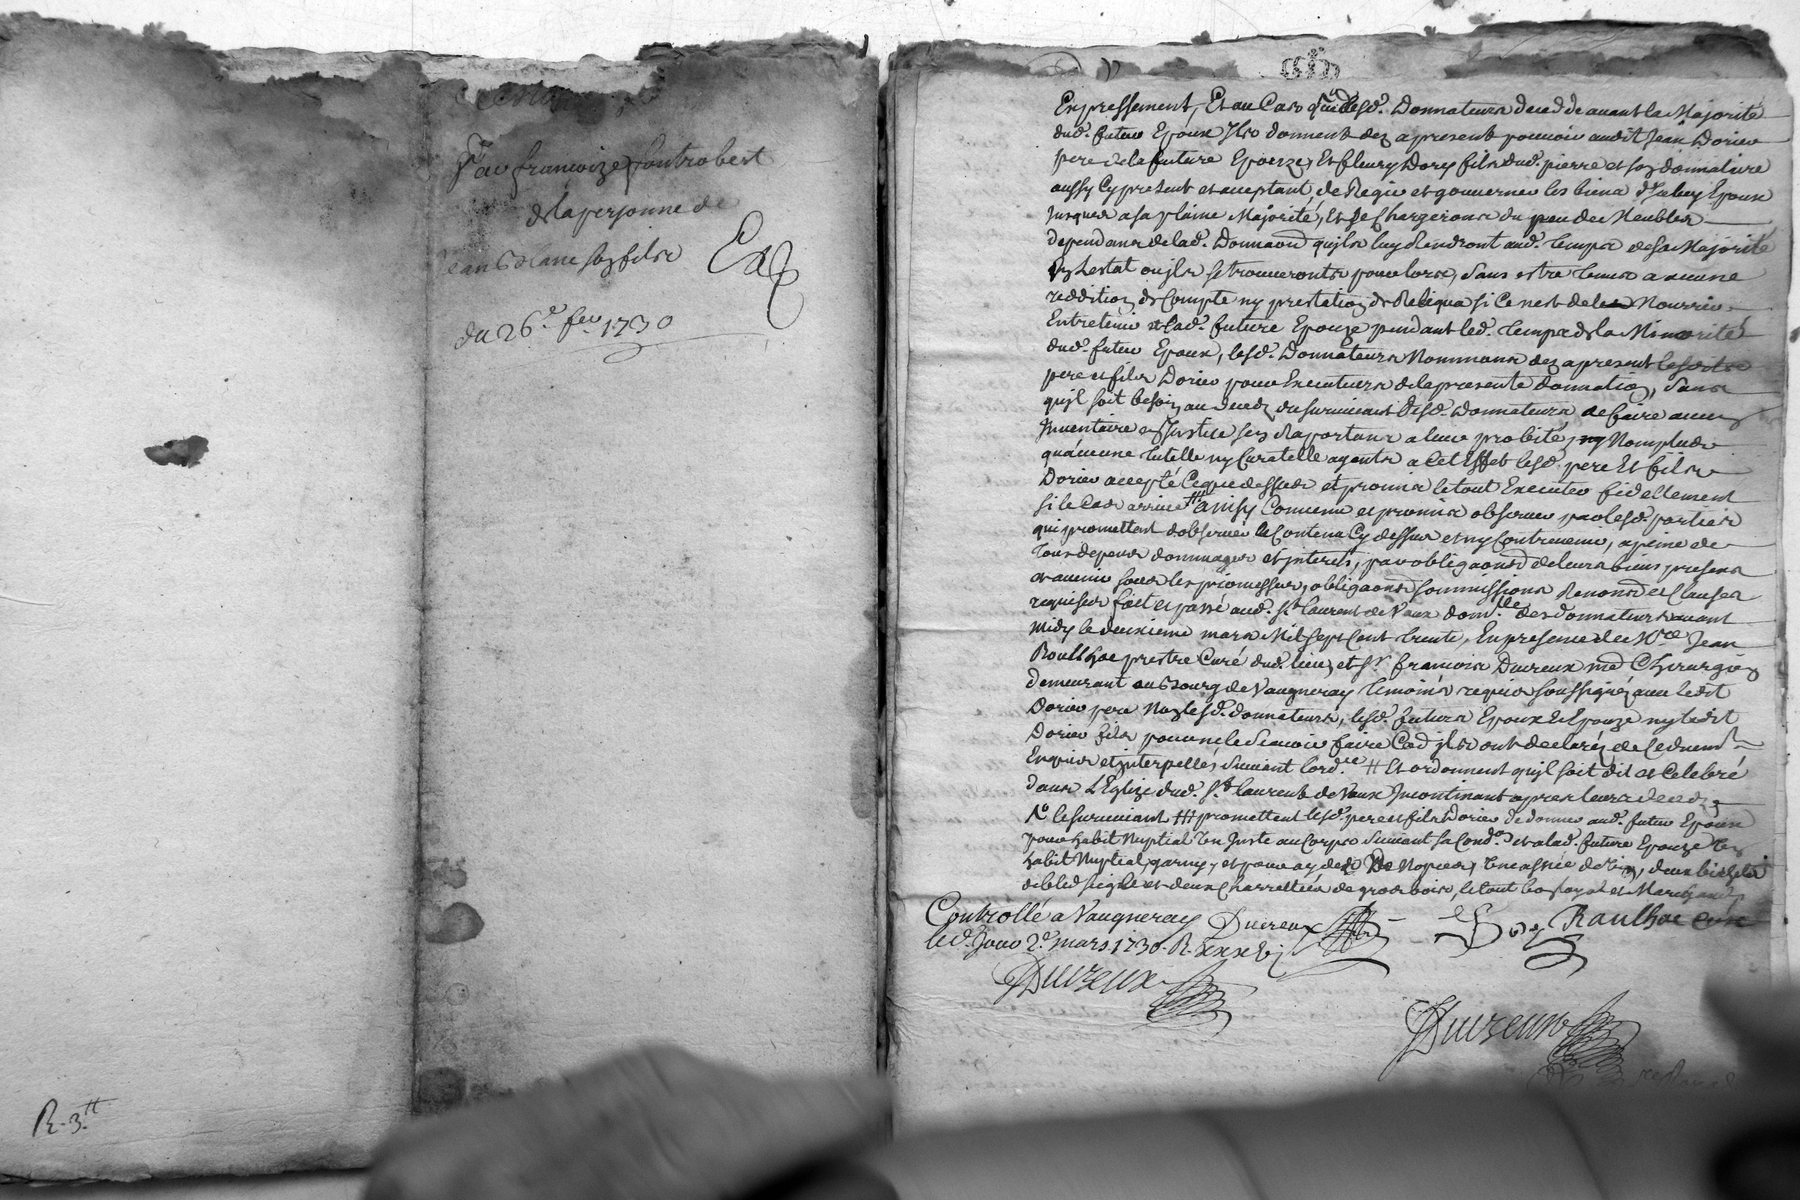 par françoize fontrobert
de la personne de
Jean Blanc son fils
du 26.e feu. 1730
R. 3.tt
Expressement, Et au Cas que lesd. Donnateurs deceddé auant la Majorité
dud. futeur Epoux Ils donnent dez a present pouuoir audit Jean Dorieu
pere de la future Epouze, Et fleury Dorieu fils dud. pierre et son donnataire
aussy Cy present et acceptant, de Regir et gouuerner les biens Epoux
Jusques a sa plaine Majorité, Et se Chargeront du peu de Meubles
dependans de lad. Donnaon quils luy Rendront aud. temps de sa Majorité
En Lestat ou jls se trouueronts pour lors, sans estre tenus a aucune
reddition de Compte ny prestation de Reliqua si ce nest de Nourrir
Entretenir et lad. future Epouze pendant led. temps de la Minorité
dud. futeur Epoux, lesd. Donnateurs Nommans dez apresent lesdits
pere et fils Dorieu pour Executeurs de la presente donnation, sans
quil soit besoin au decedz du suruiuant desd. Donnateurs de faire aucun
Inuentaire en Justice sen Raportans a leur probité, ny Nomplus
quaucune tutelle ny Curatelle ayants a Cet Effet lesd. pere Et fils
Dorieu accepté Ceque dessus et promis le tout Executer fidellement
si le Cas arriue ainsy Conuenu et promis obseruer par lesd. parties
qui promettent dobseruer le Contenu Cy dessus et ny Contreuenir, a peine de
tous depens dommages et jnterets, par obligaons de leurs biens presens
et auenir sous les promesses, obligaons soummissions Renons et Clauses
requises fait et passé aud. St laurent de Vaux domlle des donnateurs auant
Midy le deuxieme mars Mil sept Cent trente, En presence de Mre Jean
Roulhac prestre Curé dud. lieu, et Sr françois Ducreux me Chirurgien
demeurant au Bourg de Vaugneray temoins requis soussignéz auec ledit
Dorieu pere Non lesd. donnateurs, lesd. futurs Epoux et Epouze ny ledit
Dorieu fils pour ne le Scauoir faire Cod jls ont declaréz de Ce duement
Enquis et jnterpellés suiuant lord.ce # Et ordonnent quil soit dit et Celebré
dans LEglize dud. St laurent de Vaux Incontinant apres leurs decedz
le suruiuant ### promettent lesd. pere et fils Dorieu de donner aud. futeur Epoux
pour habit Nuptial Un Juste au Corps suiuant sa Cond.on et a lad. future Epouze Un
habit Nuptial, garny, et pour ayder de Nopces, Une asnée de Vin, deux bichets
de bled seigle et deux Charrettées de gros bois, le tout bon loyal et Marchand
Controllé a Vaugneray Ducreux
led. Jour 2.e mars 1730. R.
Ducreux
Raulhac curé
Ducreux